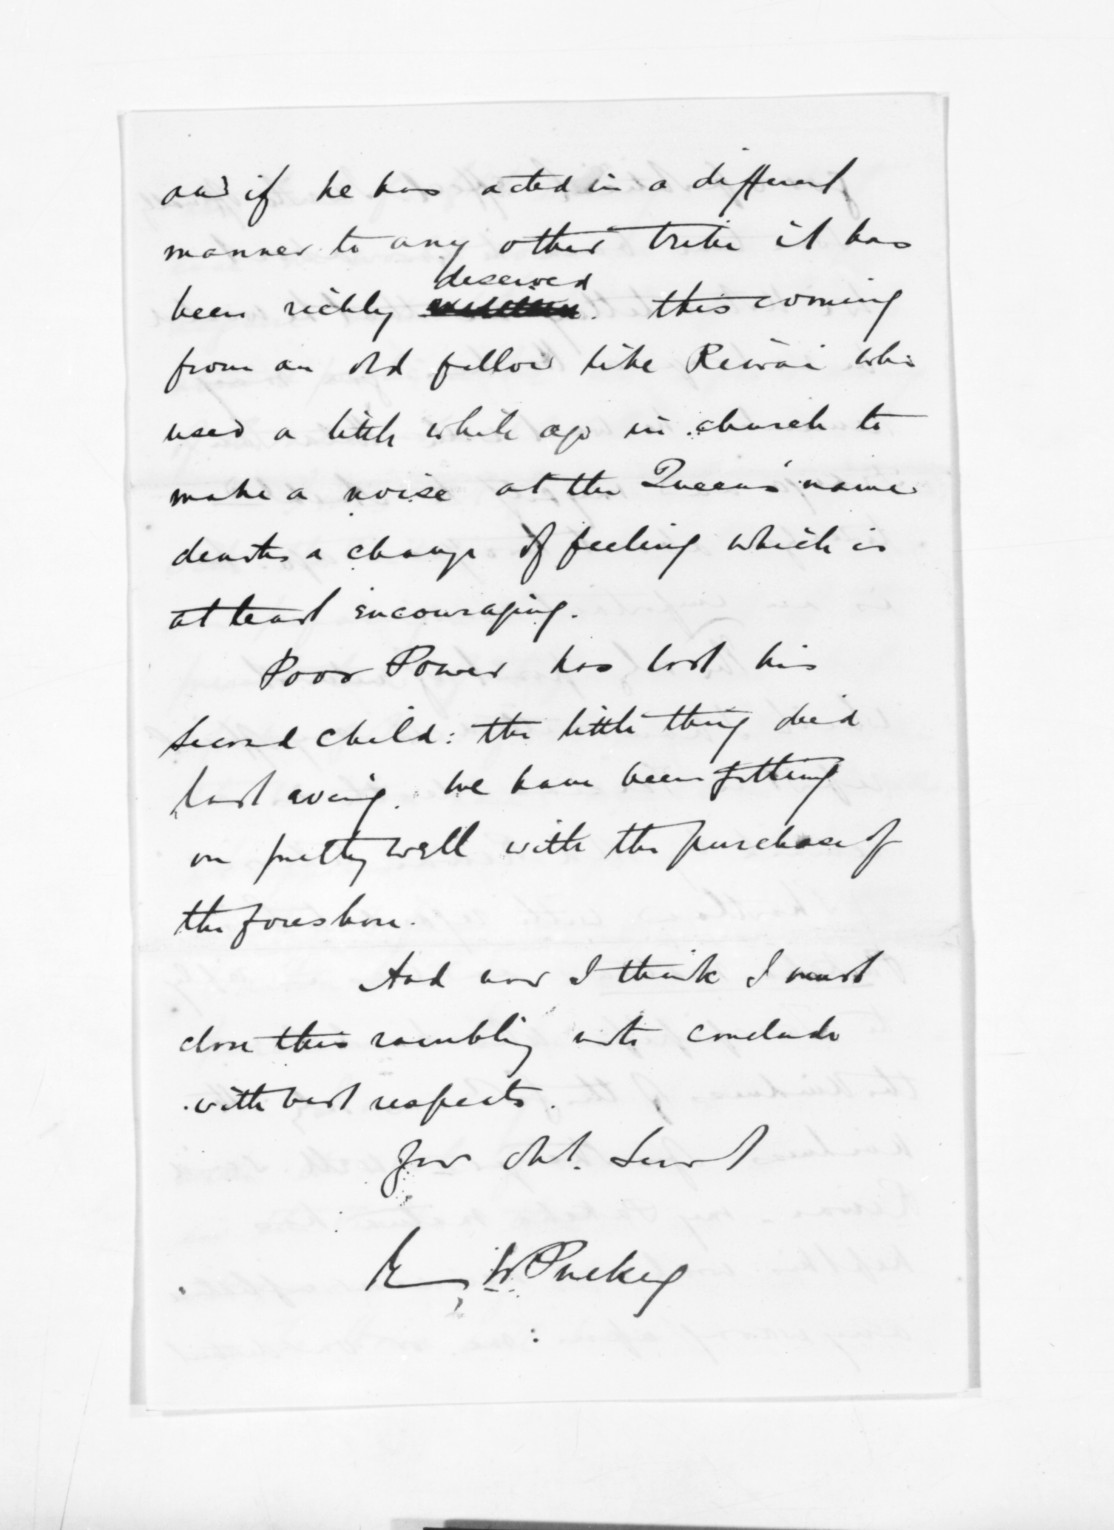 and if he has acted in a different
manner to any other tribe it has
been richly deserved. this coming
from an old fellow like Rewai who
used a little while ago in church to
make a noise at the Queen's name
denotes a change of feeling which is
at least encouraging.
Poor Power has lost his
second child: the little thing died
last evening. We have been getting
on pretty well with the purchase of
the foreshore.
And now I think I must
close this rambling note conclude
with best respects.
Your Obt. Servt
W Puckey